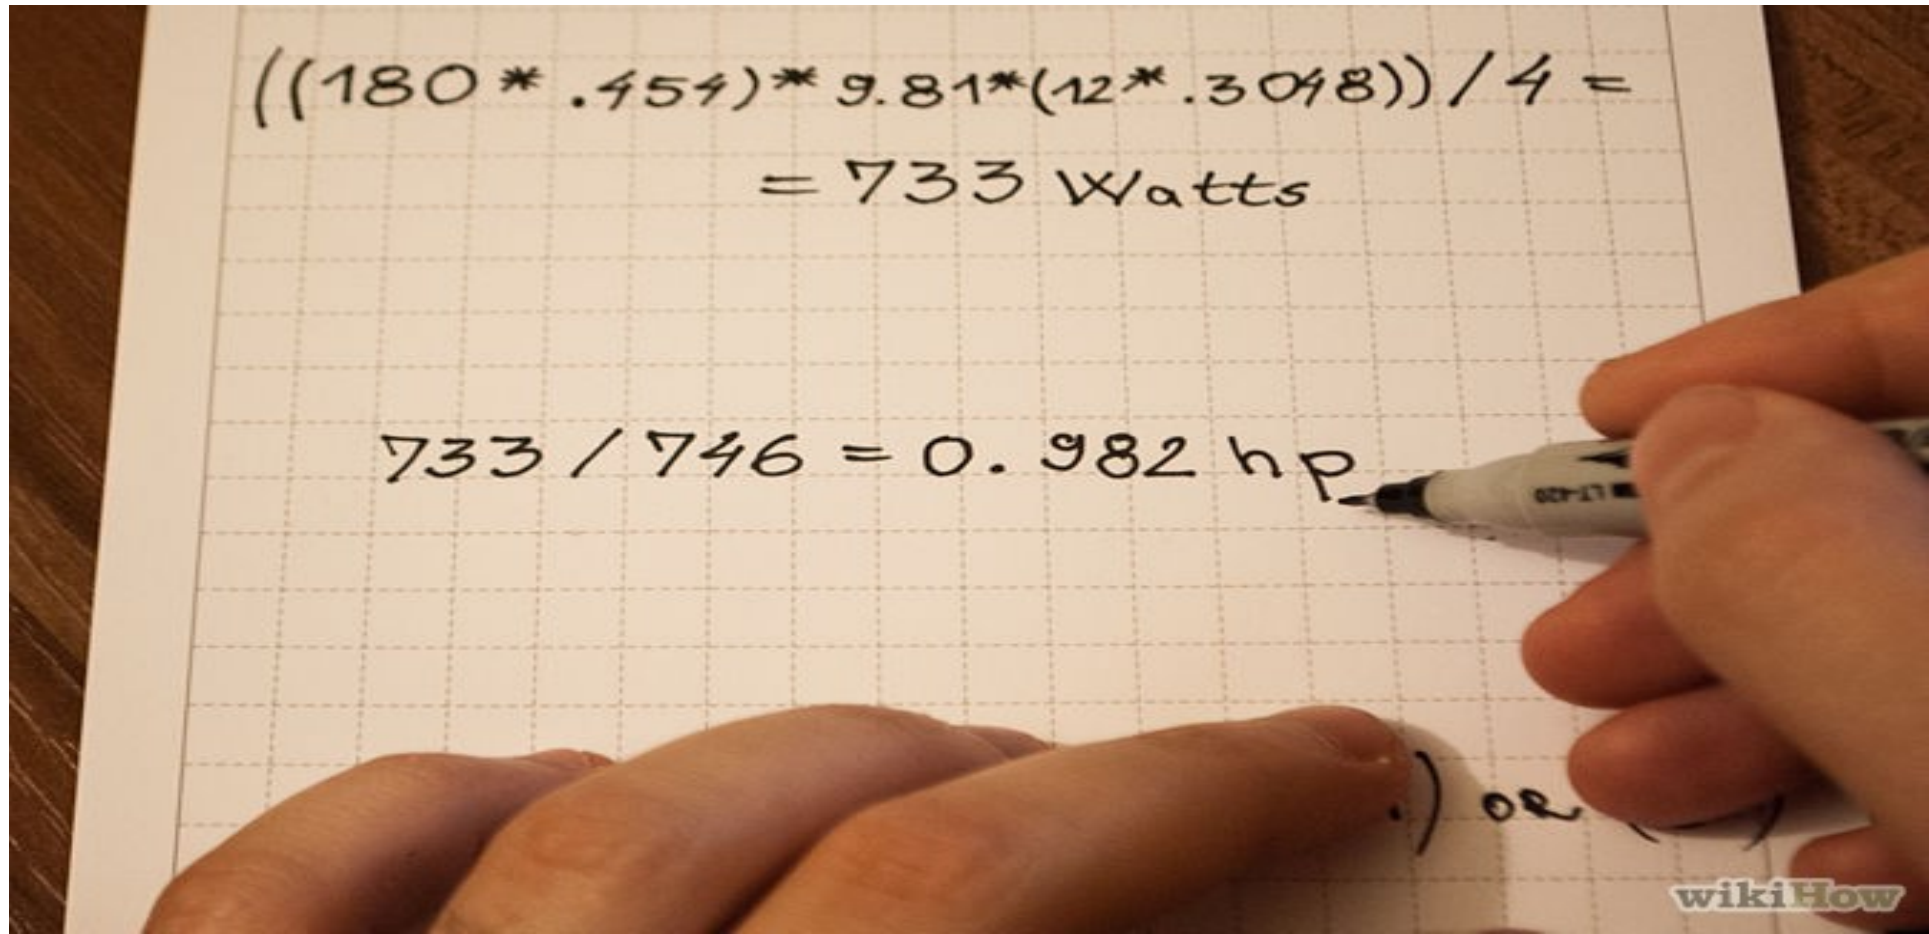 ((180 * .454) * 9.81 * (12 * .3048)) / 4 =
= 733 Watts
733 / 746 = 0.982 hp
.) OR (
LT-420
wikiHow